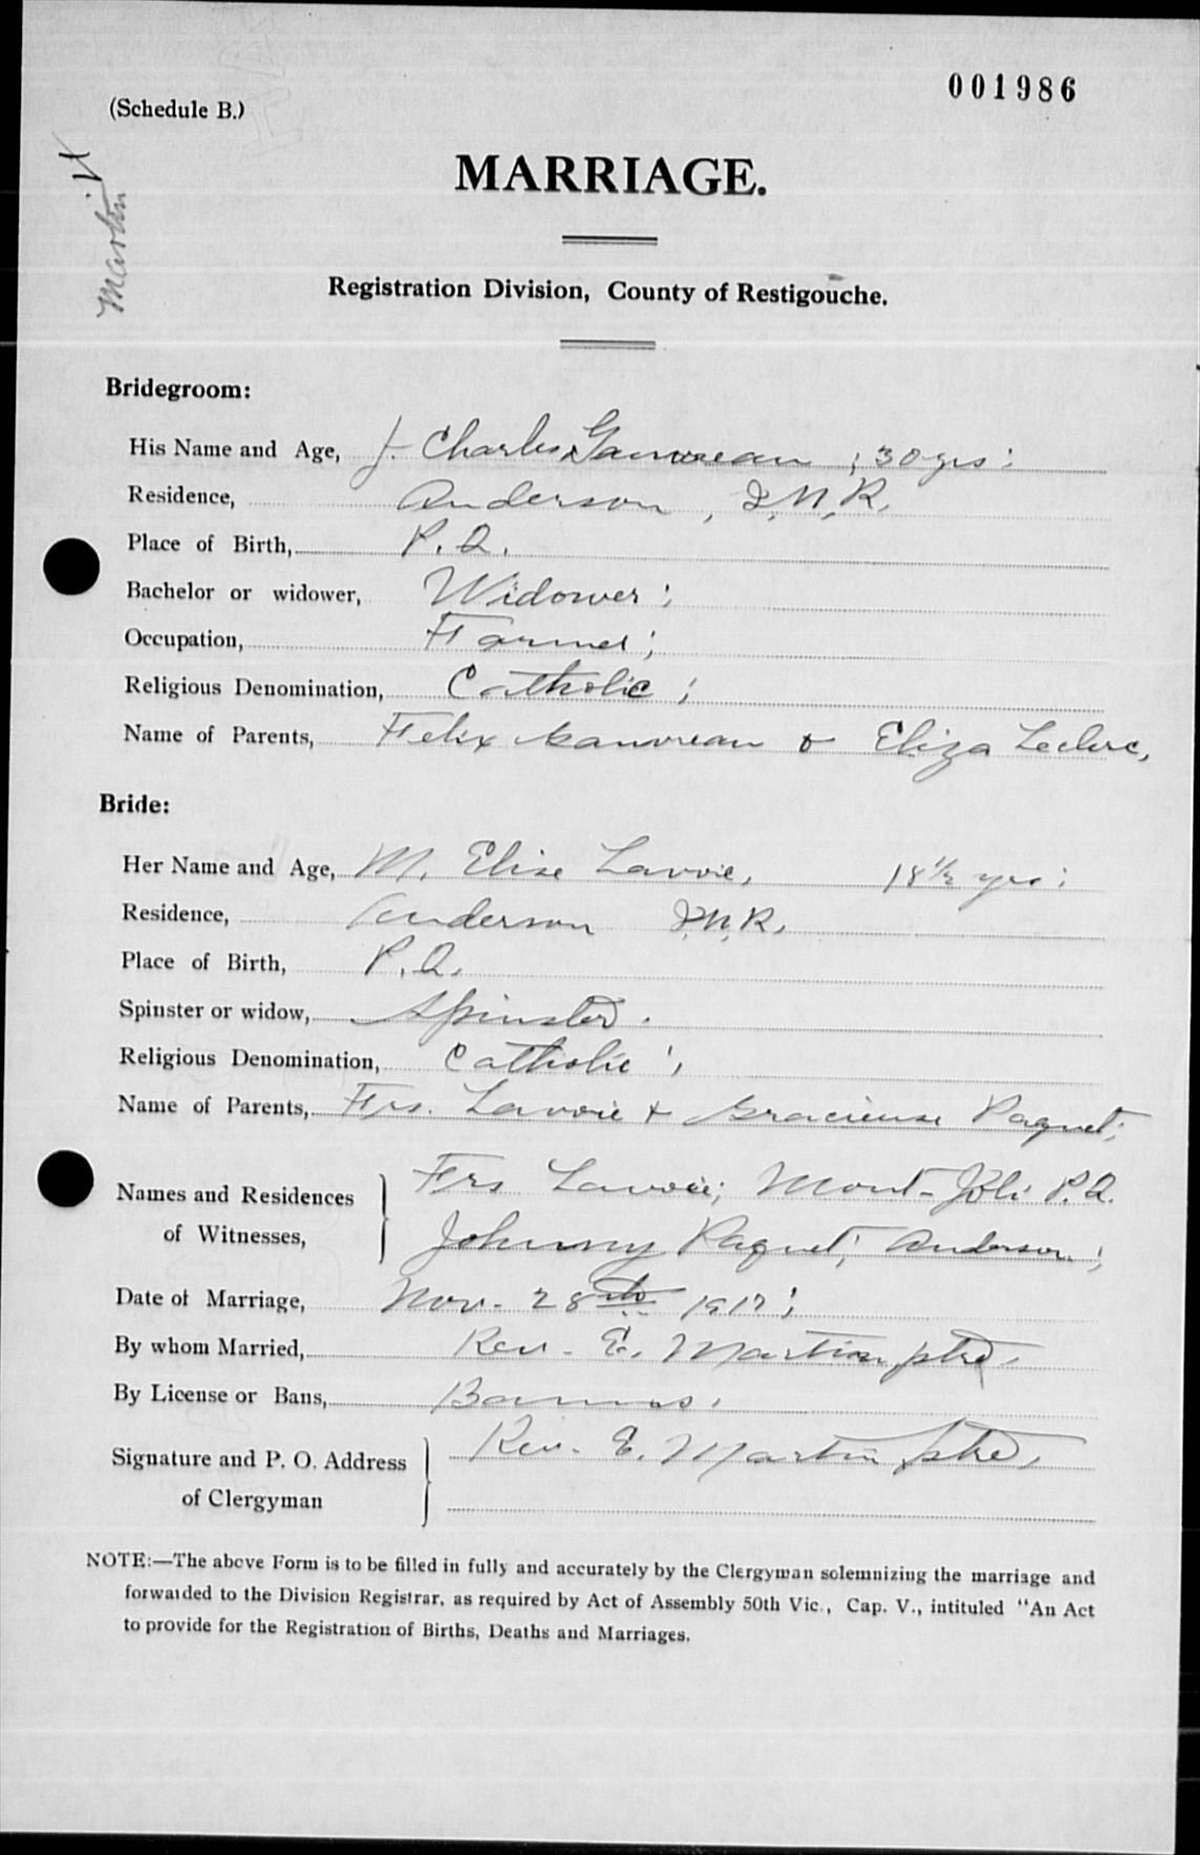 001986
(Schedule B.)
Martin
MARRIAGE.
Registration Division, County of Restigouche.
Bridegroom:
His Name and Age, J. Charles Gauvreau ; 30 yrs :
Residence, Anderson, I.N.R.
Place of Birth, P.Q.
Bachelor or widower, Widower ;
Occupation, Farmer ;
Religious Denomination, Catholic ;
Name of Parents, Felix Gauvreau & Eliza Leclerc,
Bride:
Her Name and Age, M. Elise Lavoie, 18½ yrs :
Residence, Anderson I.N.R.
Place of Birth, P.Q.
Spinster or widow, Spinster.
Religious Denomination, Catholic ;
Name of Parents, Frs. Lavoie & Gracieuse Paquet ;
Names and Residences of Witnesses, Frs Lavoie ; Mont-Joli P.Q.
Johnny Paquet ; Anderson ;
Date of Marriage, Nov. 28th 1917 ;
By whom Married, Rev. E. Martin ptre,
By License or Bans, Banns.
Signature and P. O. Address of Clergyman Rev. E. Martin ptre,
NOTE:—The above Form is to be filled in fully and accurately by the Clergyman solemnizing the marriage and
forwarded to the Division Registrar, as required by Act of Assembly 50th Vic., Cap. V., intituled "An Act
to provide for the Registration of Births, Deaths and Marriages.